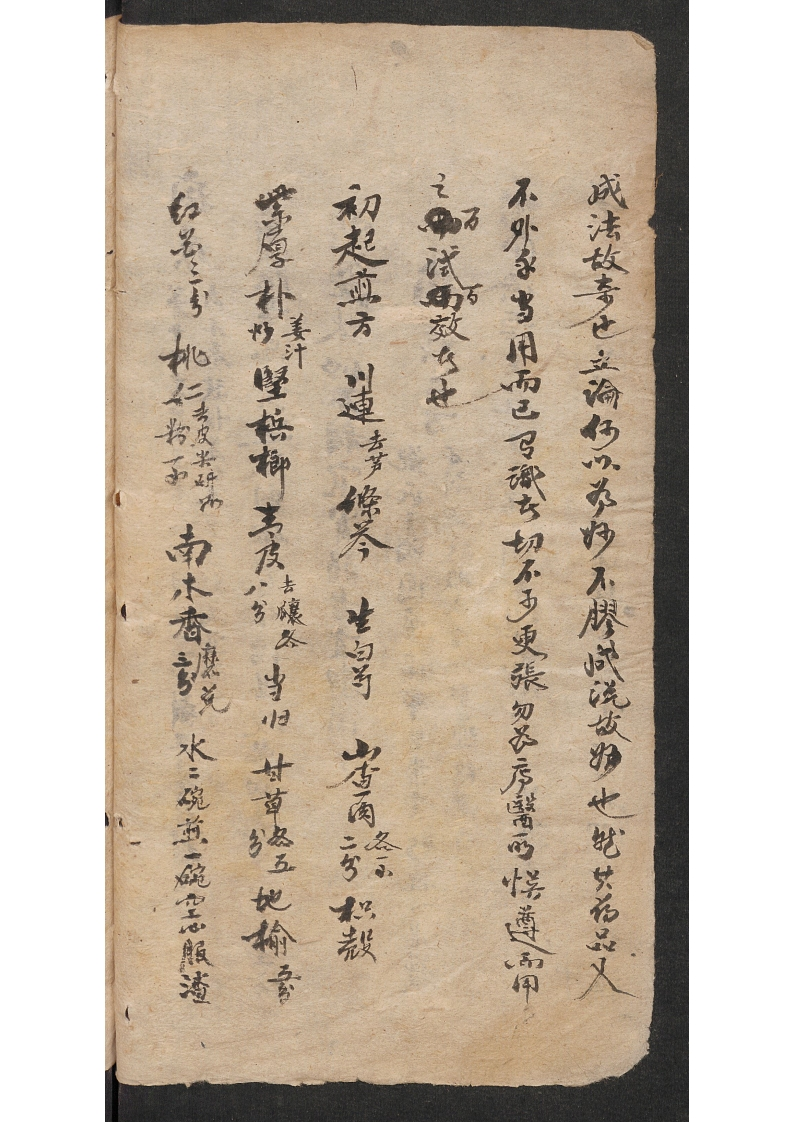 成法故奇也立論何以為妙不膠成说故妙也然其药品又
不外乎当用而已有識者切不可更張勿為庸醫所悮遵而用
之万試百效者也
初起煎方 川連去芦 條芩 生白芍 山查肉各一不二分 枳殻
紫厚朴炒姜汁 堅槟榔 青皮去穰各八分 当归 甘草各五分 地榆五分
红花三分 桃仁去皮尖研如粉一不 南木香二分磨兑 水二碗煎一碗空心服渣